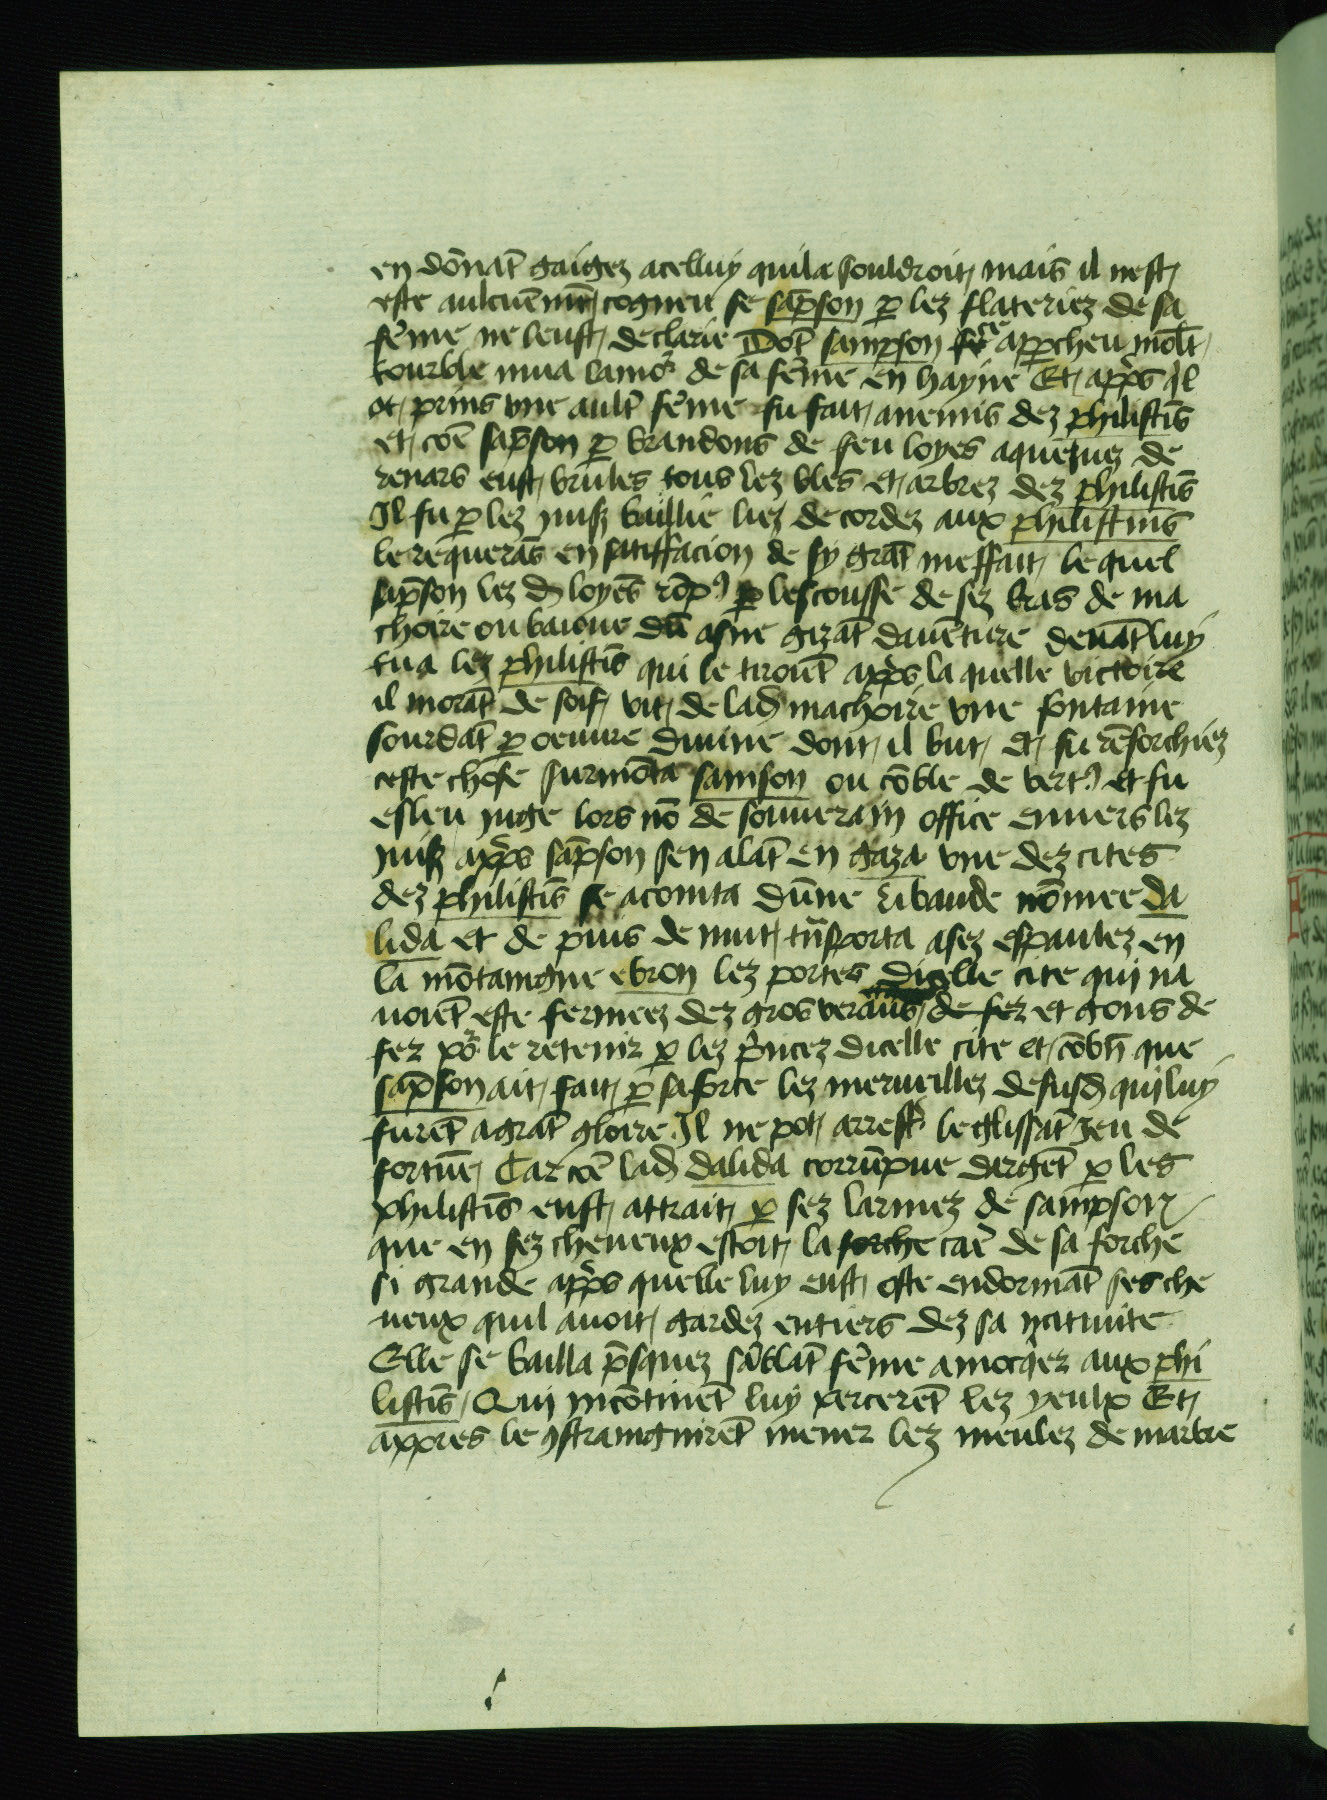 en dōnāt gaigez acelluy quila souldroit mais il nest
este aulcuēmēt cogneu se sāpson ꝑ lez flateriez de sa
fēme ne leust declarie Dōt sampson ce aꝑcheu mōlt
tourble mua lamoʳ de sa fēme en hayne Et apꝑs ql
ot prins vne ault̄ fēme fu fait anemis dez philistīs
et cōe sāpson ꝑ brandons de feu loyes aquewez de
renars eust brules tous lez bles et arbrez dez philistīs
Il fu ꝑ lez juifz baillie liez de cordez aux philistins
le requerās en satiffacion de sy grāt meffait lequel
sāpson lez d̄ loyēs rōpꝰ ꝑ lescousse de sez bras de ma
choire ou baioue dū asne gizāt dauēture deuāt luy
tua lez philistīs qui le tiroiēt apꝑs la quelle victoire
il morāt de soif vit de lad̄ machoire vne fontaine
sourdāt ꝑ oeuure diuine dont il but et fu rēforchiez
ceste chose surmōta samson ou cōble de vertꝰ et fu
esleu juge lors nō de souuerain office enuers lez
juifz apꝑs sāpson sen alāt en gaza vne dez cites
dez philistīs se acointa dūne ribaude nōmee da
lida et de puis de nuit trāsporta asez espaulez en
la mōtaingne ebron lez portes dicelle cite qui na
uoiēt este fermeez dez gros veraus de fez et gons de
fez poʳ le retenir ꝑ lez pꝛincez dicelle cite et cōbn̄ que
sāpson ait fait ꝑ sa force lez merueillez desusd̄ qui luy
furēt agrāt gloire Il ne pot arrest̄ le glissāt jeu de
fortūe Car cōe lad̄ dalida corrūpue dargēt ꝑ les
philistīs eust attrait ꝑ sez larmez de sampson
que en sez cheueux estoit la forche cae de sa forche
si grande apꝑs quelle luy eust oste endormāt ses che
ueux quil auoit gardez entiers dez sa natiuite
Elle se bailla pſquez sāblāt fēme amocqer aux phi
listīs Qui incōtinēt luy percerēt lez yeulx Et
appres le ꝯstraingnirēt mener lez meulez de marbre